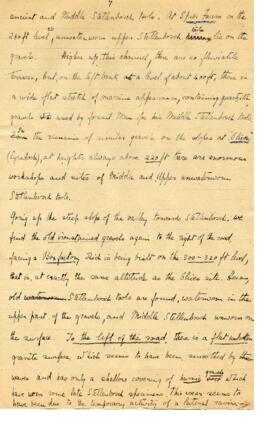 7
ancient and Middle Stellenbosch tools. At Spier Farm on the
260 ft level, unwaterworn upper Stellenbosch tools lie on the
gravels. Higher up this channel, there are no fluviatile
terraces, but on the left bank at a level of about 200 ft, there is
a wide flat stretch of marine appearance, containing
gravels used by fossil Man for his Middle Stellenbosch tools
the remains of similar gravels on the slopes at
at heights always above 220 ft there are enormous
workshops and sites of Middle and Upper unwaterworn
Stellenbosch tools.
Going up the steep slope of the valley towards Stellenbosch, we
find the old gravels again to the right of the road
facing a which is being built on the 300-320 ft level,
that is, at exactly the same altitude as the site. Many
old Stellenbosch tools are found, waterworn in the
upper part of the gravels, and Middle Stellenbosch unworn on
the surface. To the left of the road, there is a flat
granite surface, which seems to have been smoothed by the
waves and has only a shallow covering of gravels which
have worn some late Stellenbosch specimens. This wear seems to
have been due to the temporary activity of a lateral